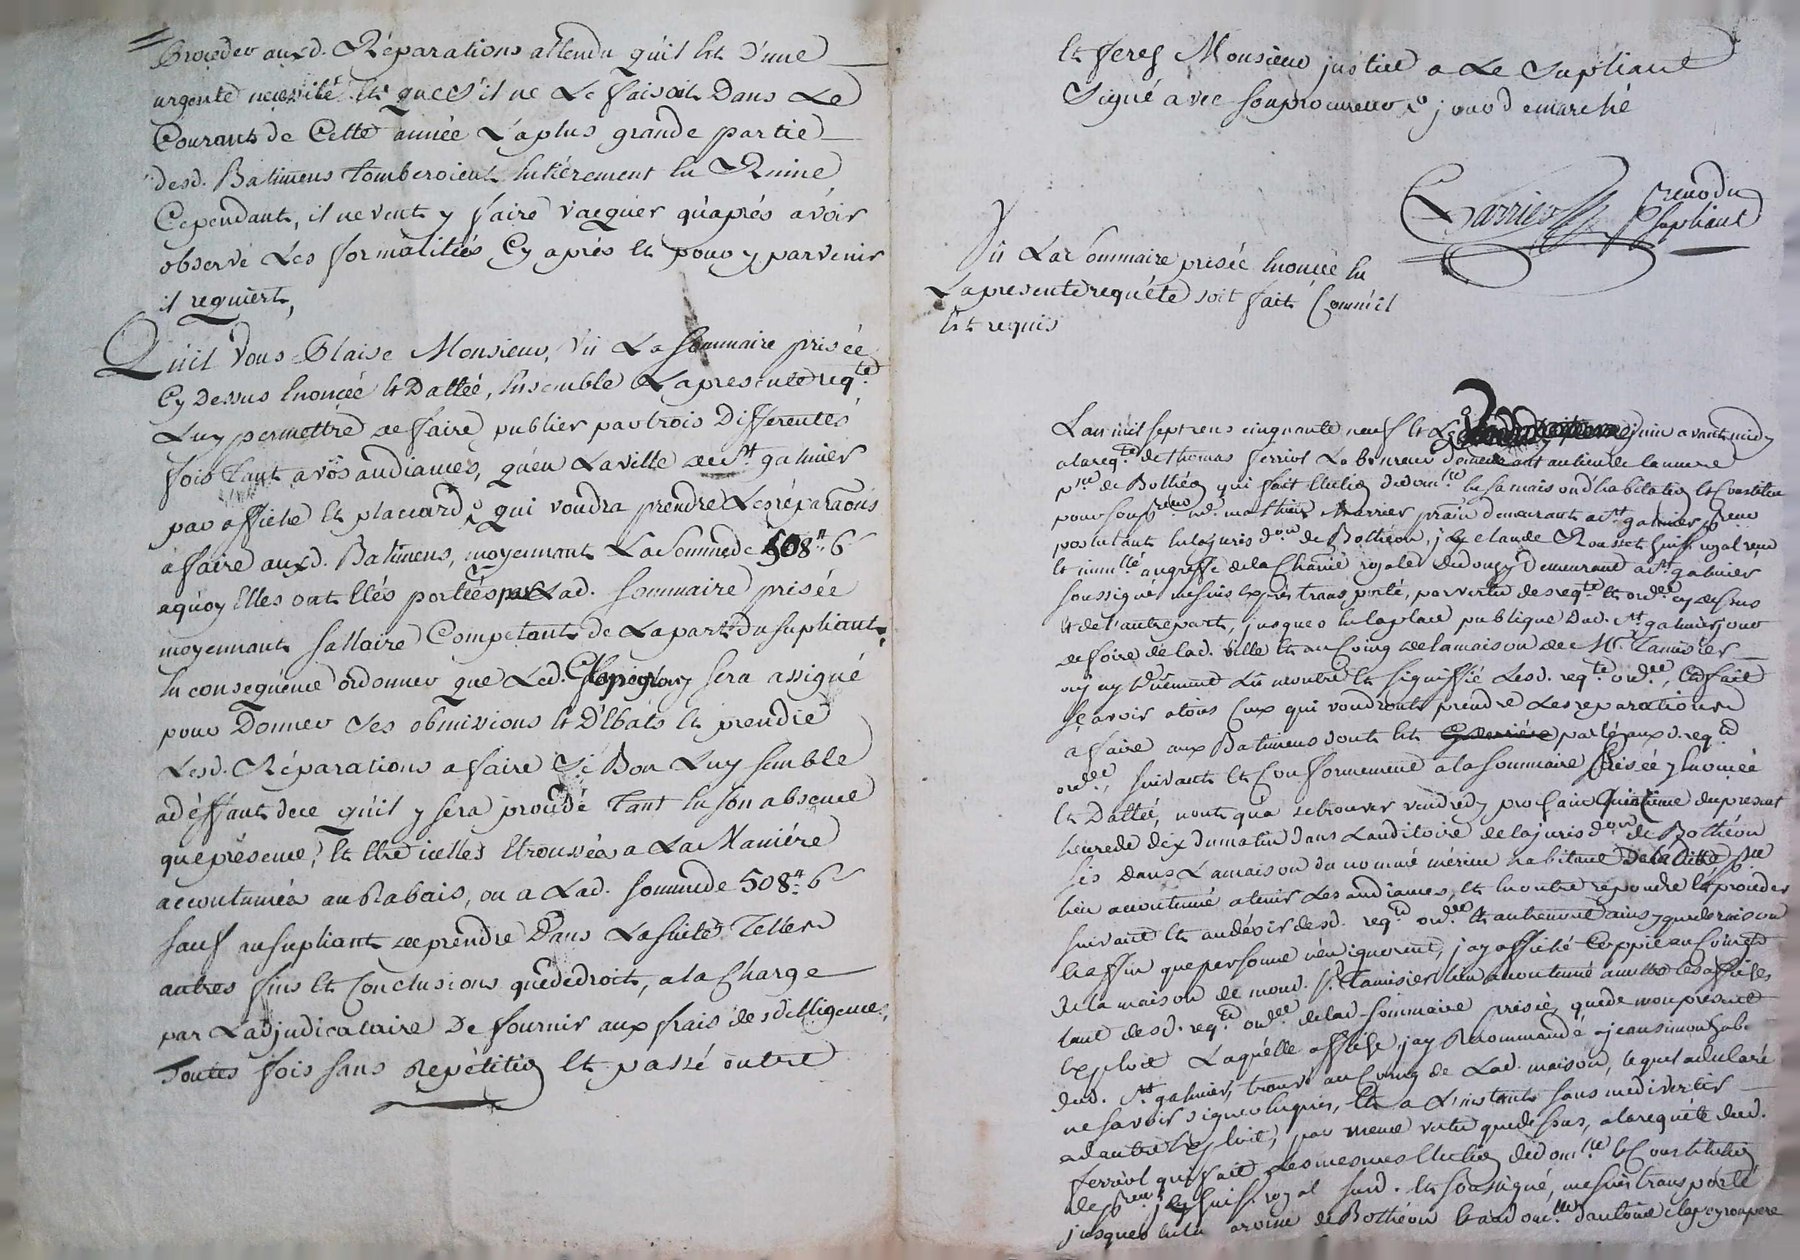 Proceder auxd. Réparations attendu qu'il Est d'une
urgente necessité Et que S'il ne Le faisoit Dans Le
Courant de Cette année La plus grande partie
desd. Batimens tomberoient Entiérement En Ruine
Cependant, il ne veut y faire vacquer qu'aprés avoir
observé Les formalitiés Cy aprés Et pour y parvenir
il requiert,
Qu'il Vous Plaise Monsieur, Vû La Sommaire prisée
Cy Dessus Enoncée Et Dattée, Ensemble La presente reqte.
Luy permettre de faire publier par trois Differentes
fois Tant a vos audiances, qu'en La ville de St. galmier
par affiche Et placcard, qui voudra prendre Les réparaõns
a faire auxd. Batimens, moyennant La Somme de 508 tt. 6 s
aquoy Elles ont Etés portées par Lad. Sommaire prisée
moyennant Sallaire Competant de La part du supliant,
En consequence ordonner que Led. Clapeyron sera assigné
pour Donner Ses obmissions Et Débats Et prendre
Lesd. Réparations a faire Si Bon Luy Semble
adéffaut de ce qu'il y sera procédé Tant En Son absence
que présence, Et Etre icelles Etroussées a La Maniére
accoutumée au Rabais, ou a Lad. Somme de 508 tt. 6 s
Sauf au supliant de prendre Dans La suite Telles
autres fins Et Conclusions que de droit, a la Charge
par L'adjudicataire De fournir aux frais des dilligences,
Toutes fois Sans Repétition Et passé outre
Et ferez Monsieur justice a Le Supliant
Signé avec Son procureur, jour de marché
Barrieu procr. du supliant
Vû La Sommaire prisée Enoncée En
La presente requéte soit fait Comme il
Est requis
L'an mil sept cens cinquante neuf Et Le juin avant midy
a la reqte. de thomas ferriol Laboureur demeurant au lieu de
psse. de Bothéon qui fait Election de domlle. En sa maison d'habitation Et Constitue
pour Son procr. Me. mathieu Barrieu pratn. demeurant a St. galmier procr.
postulant En la jurisdon. de Bothéon, je Claude Rousset huissr. royal receu
Et immlé. au greffe de la Chanie. royale de donzy Demeurant a St. galmier
Soussigné me suis Exprés transporté, par vertu des reqte. Et ordce. cy dessus
Et de l'autre part, jusques En la place publique dud. St. galmier jour
de foire de lad. ville Et au Coing de la maison de Mr. Tamisier
ou j'ay düement Lû montré Et Signiffié Lesd. reqte. ordce., Et fait
Sçavoir a tous Ceux qui voudront prendre Les reparations
a faire aux Batimens dont Est parlé auxd. reqte.
ordce., Suivant Et Conformement a la Sommaire Prisée y Enoncée
Et Dattée, n'ont qu'a se trouver vendredy prochain Quinzième du present
heure de dix du matin dans L'auditoire de la jurisdon. de Bothéon
Sis dans La maison du nommé mérieu habitant De la ditte psse.
lieu accoutumé a tenir Les audiances, Et En outre répondre Et proceder
Suivant Et au désir desd. reqte. ordce. Et autrement ainsy que de raison
Et affin que personne n'en ignorent, j'ay affiché Coppie au Coing
de la maison de mond. Sr. Tamisier lieu accoutumé a mettre les affiches
tant desd. reqte. ordce. de lad. Sommaire prisée, que de mon present
Exploit Laquelle affiche, j'ay Recommandé a jean simon hab.
dud. St. galmier, trouvé au Coing de Lad. maison, lequel a declaré
ne savoir signer Enquis, Et a L'instant sans me divertir
ad autre Exploit, par meme vertu que dessus, a la requéte dud.
ferriol qui fait Les mesmes Election de domlle. Et Constitution
de procr. je huissr. royal Susd. Et Soussigné, me suis transporté
jusques En la psse. de Bothéon Et au domlle. d'antoine clapeyron pere